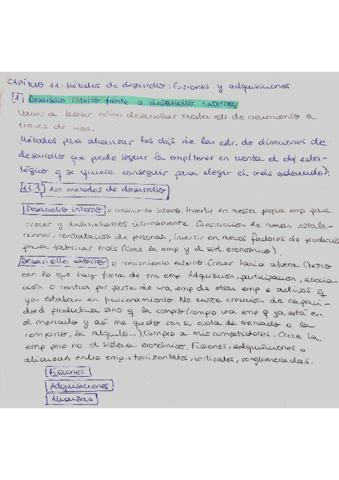 CAPÍTULO 11: Métodos de desarrollo: Fusiones y adquisiciones
[1] Desarrollo interno frente a desarrollo externo
Vamos a buscar cómo desarrollar nuestra estr. de crecimiento a
través de vías.
Métodos para alcanzar los objs de las estr. de direcciones de
desarrollo que puede seguir la emp (tener en cuenta el obj estra-
tégico q se quiere conseguir para elegir el más adecuado):
[1.1] Los métodos de desarrollo
Desarrollo interno o crecimiento interno. Invertir en nuestra propia emp para
crecer y desarrollarnos internamente. Construcción de nuevas instala-
ciones, contratación de personas, invertir en nuevos factores de producción
para fabricar más (Crece la emp y el sist económico).
Desarrollo externo o crecimiento externo. Crecer hacia afuera. Crezco
con lo que hay fuera de mi emp. Adquisición, participación, asocia-
ción o control por parte de una emp de otras emp o activos q
ya estaban en funcionamiento. No existe creación de capaci-
dad productiva sino q la compro (compro una emp q ya está en
el mercado y así me quedo con su cuota de mercado o la
comparto, la alquilo...) Compro a mis competidores. Crece la
emp pero no el sistema económico. Fusiones, adquisiciones o
alianzas entre emp: horizontales, verticales, conglomeradas.
Fusiones
Adquisiciones
Alianzas